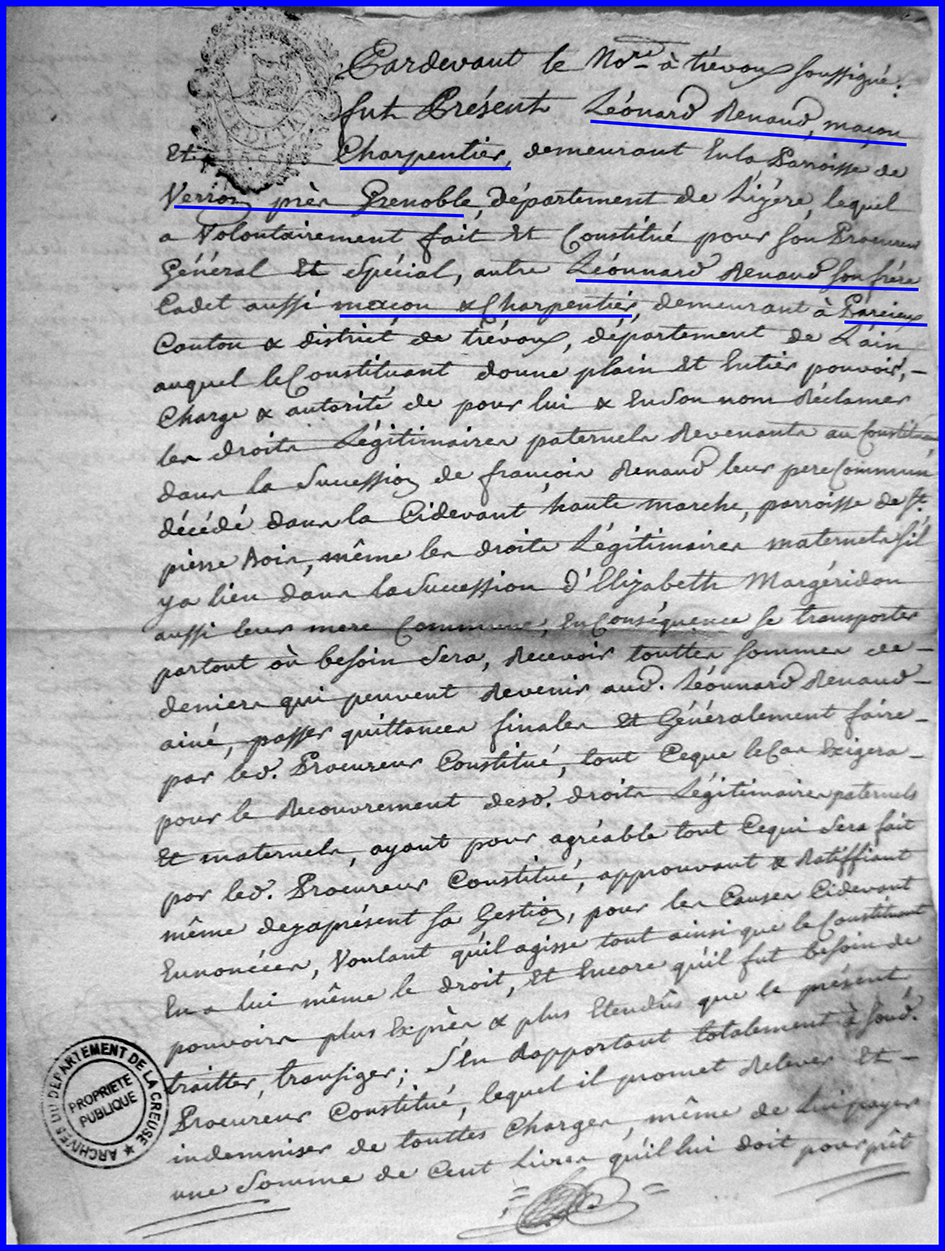 Pardevant le Nore à trévoux soussigné.
fut Présent Léonard Renaud, maçon
Et Charpentier, demeurant En la Parroisse de
près Grenoble, département de Lizére, lequel
a Volontairement fait Et Constitué pour son Procureur
Général Et Spécial, autre Léonnard Renaud son frère
Cadet aussi maçon & Charpentier, demeurant à Parcieux
Canton & district de trévoux, département de Lain
auquel le Constituant donne plain Et Entier pouvoir, -
Charge & autorité de pour lui & En son nom Réclamer
les droits Légitimaires paternels Revenants au Constituant
dans la Succession de françois Renaud leur pere Commun
décédé dans la Cidevant haute marche, parroisse de St.
pierre Bois, même les droits Légitimaires maternels s'il
y a lieu dans la Succession D'Elizabeth Margéridon
aussi leur mere Commune, En Conséquence se transporter
partout où besoin Sera, Recevoir touttes sommes de -
deniers qui peuvent Revenir aud. Léonnard Renaud -
ainé, passer quittances finales Et Généralement faire -
par led. Procureur Constitué, tout Ceque le Cas Exigera -
pour le Recouvrement desd. droits Légitimaires paternels
Et maternels, ayant pour agréable tout Cequi Sera fait
par led. Procureur Constitué, approuvant & Ratiffiant
même dezaprésent sa Gestion, pour les Causes Cidevant
Ennoncées, Voulant qu'il agisse tout ainsi que le Constituant
En a lui même le droit, Et Encore qu'il fut besoin de
pouvoirs plus Exprès & plus Etendüs que le présent,
traitter, transiger; S'En Rapportant totalement à sond.
Procureur Constitué, lequel il promet Relever Et -
indemniser de touttes Charges, même de Lui payer
une Somme de Cent Livres qu'il lui doit pour prêt
ARCHIVES DU DÉPARTEMENT DE LA CREUSE
PROPRIETE
PUBLIQUE